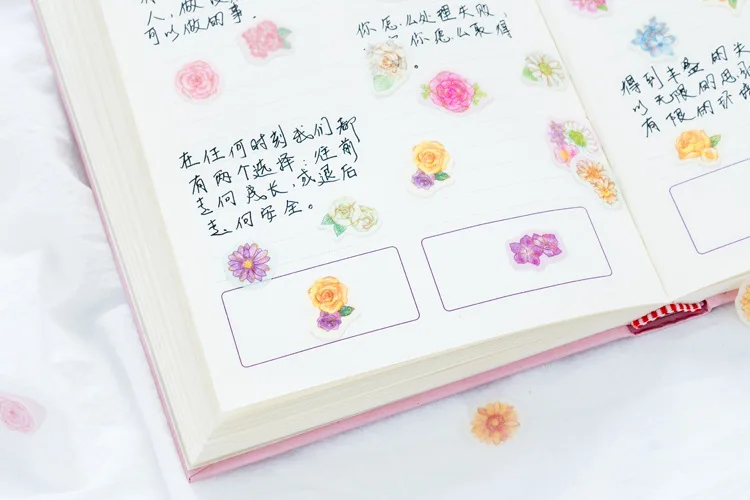 人，做
可以做的事。
你 么处理失败，
你 么取得
。
在任何时刻我们都
有两个选择：往前
走向成长，或退后
走向安全。
得到丰盛的
以无限的思
有限的环境